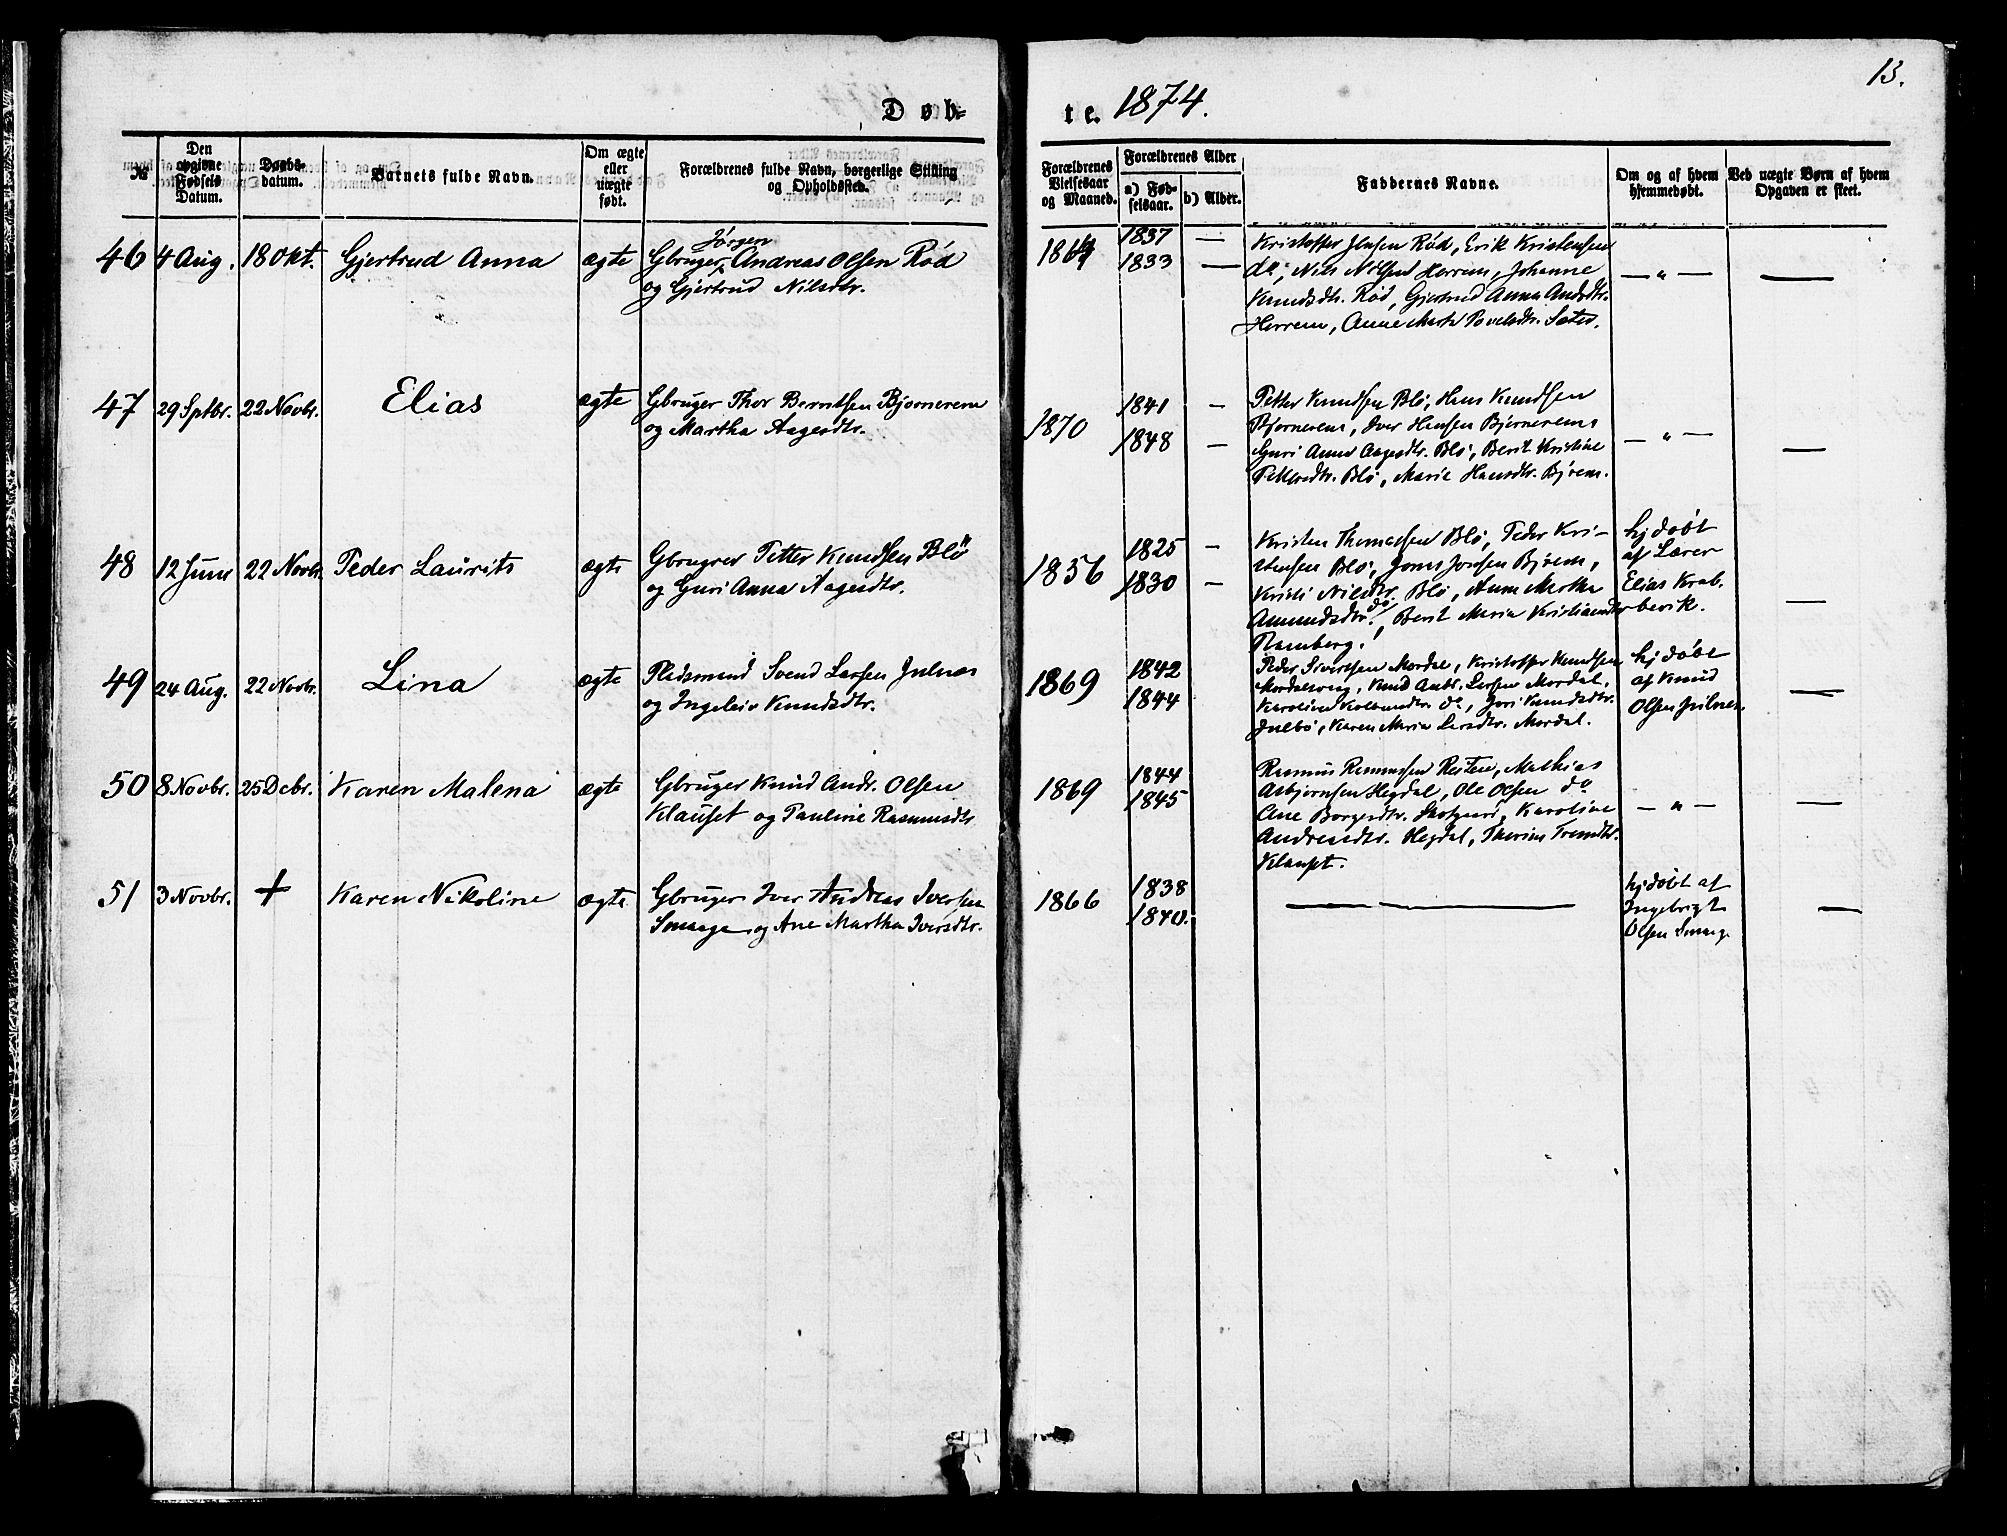 13.
Døb-
te. 1874.
№
Den opgivne Fødsels Datum.
Daabs-datum.
Barnets fulde Navn.
Om ægte eller uægte født.
Forældrenes fulde Navn, borgerlige Stilling og Opholdssted.
Forældrenes Vielsesaar og Maaned.
Forældrenes Alder
a) Fødselsaar.
b) Alder.
Faddernes Navne.
Om og af hvem hjemmedøbt.
Ved uægte Børn af hvem Opgaven er skeet.
46 4 Aug. 18 Okt. Gjertrud Anna ægte
Jörgen
Gbruger Andreas Olsen Rød
og Gjertrud Nilsdtr.
1864
1837 —
1833 —
Kristoffer Jensen Rød, Erik Kristensen
do, Nils Nilsen Herrem, Johanne
Knudsdtr. Rød, Gjertrud Anna Andsdtr.
Herrem, Anne Marta Povelsdtr. Sæter.
— " —
—
47 29 Sptbr. 22 Novbr. Elias ægte
Gbruger Thor Berntsen Bjornerem
og Martha Aagesdtr.
1870
1841 —
1848 —
Petter Knudsen Blö, Hans Knudsen
Bjornerem, Iver Hansen Bjornerem
Guri Anna Aagesdtr. Blö, Berit Kristine
Pettersdtr. Blö, Marie Hansdtr. Bjrem.
— " —
—
48 12 Juni 22 Novbr. Peder Laurits ægte
Gbruger Petter Knudsen Blö
og Guri Anna Aagesdtr.
1856
1825 —
1830 —
Kristen Thomassen Blö, Peder Kri-
stensen Blö, Jonas Jonsen Bjrem,
Kristi Nilsdtr. Blö, Anne Martha
Amundsdtr. do, Berit Maria Kristiansdtr
Ramberg.
hjdøbt
af Lærer
Elias Krab-
bevik.
—
49 24 Aug. 22 Novbr. Lina ægte
Pladsmand Svend Larsen Julnæs
og Ingeleiv Knudsdtr.
1869
1842
1844
Peder Sivertsen Mordal, Kristoffer Knudsen
Knud Andr. Larsen Mordal,
do, Guri Knudsdtr.
Julbö, Karen Maria Larsdtr. Mordal.
hjdøbt
af Knud
Olsen Julnes.
—
50 8 Novbr. 25 Dcbr. Karen Malena ægte
Gbruger Knud Andr. Olsen
Klauset og Pauline Rasmusdtr
1869
1844
1845
Rasmus Rasmussen Resten, Mathias
Asbjornsen Hegdal, Ole Olsen do
Ane Borgesdtr. Karoline
Andreasdtr. Hegdal, Trondtr.
Klauset.
— " —
—
51 3 Novbr. + Karen Nikoline ægte
Gbruger Iver Andreas Iversen
Smaage og Ane Martha Iversdtr.
1866
1838
1840.
—
hjdøbt af
Ingebrigt
Olsen Smaag
—